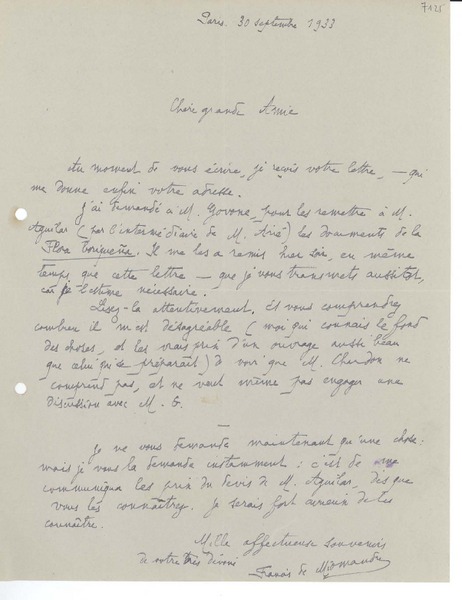 7125
Paris. 30 septembre 1933
Chère grande Amie
Au moment de vous écrire, je reçois votre lettre, — qui
me donne enfin votre adresse.
J'ai demandé à M. Govone, pour les remettre à M.
Aguilar (par l'intermédiaire de M. Arié) les documents de la
Flora. Il me les a remis hier soir, en même
temps que cette lettre — que je vous transmets aussitôt,
car je l'estime nécessaire.
Lisez-la attentivement. Et vous comprendrez
combien il m'est désagréable (moi qui connais le fond
des choses, et les vrais prix d'un ouvrage aussi beau
que celui qui se préparait) de voir que M. Chardon ne
comprend pas, et ne veut même pas engager une
discussion avec M. G.
—
Je ne vous demande maintenant qu'une chose:
mais je vous la demande instamment: c'est de me
communiquer les prix du devis de M. Aguilar, dès que
vous les connaîtrez. Je serais fort curieux de les
connaître.
Mille affectueux souvenirs
de votre très dévoué
Francis de Miomandre